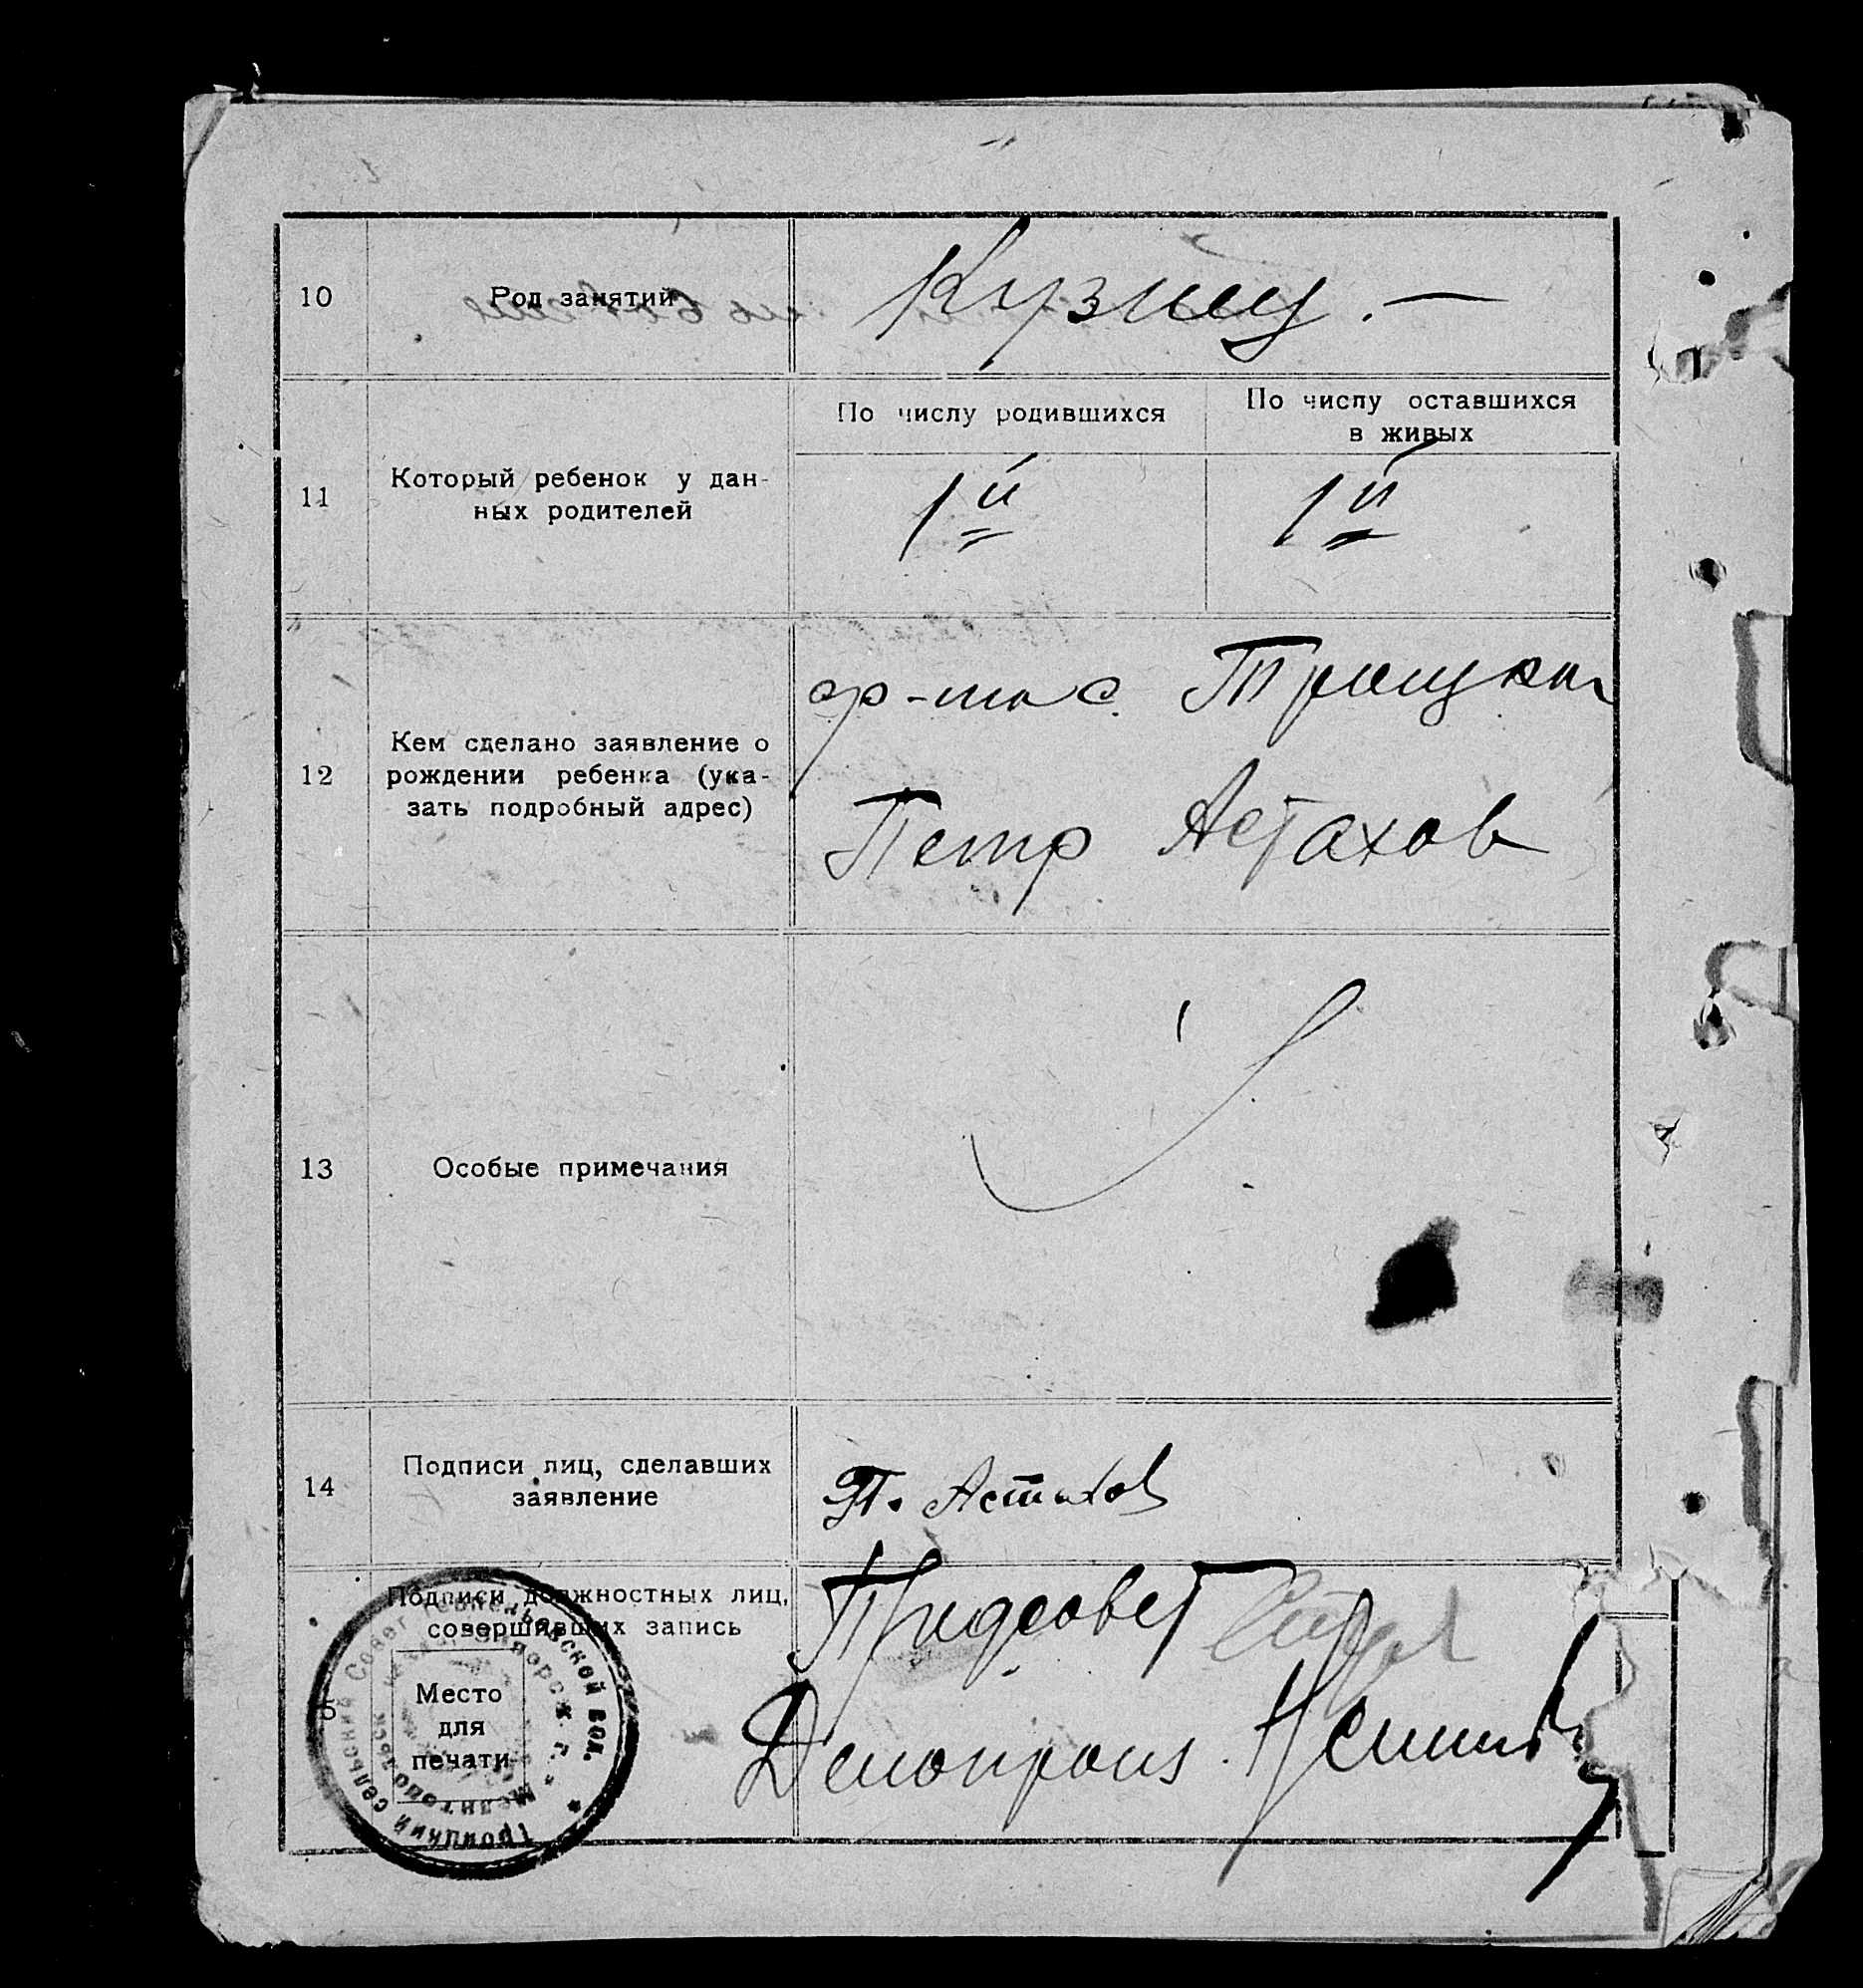 10
Род занятий
Кузнец. —
11
Который ребенок у дан-
ных родителей
По числу родившихся
По числу оставшихся
в живых
1й
1й
12
Кем сделано заявление о
рождении ребенка (ука-
зать подробный адрес)
гр-но с. Троицкого
Петр Астахов
13
Особые примечания
14
Подписи лиц, сделавших
заявление
П. Астахов
Подписи должностных лиц,
совершивших запись
Предсовет
5
Место
для
печати
Делопроиз.
Троицкий сельский Совет Терпельевской вол.